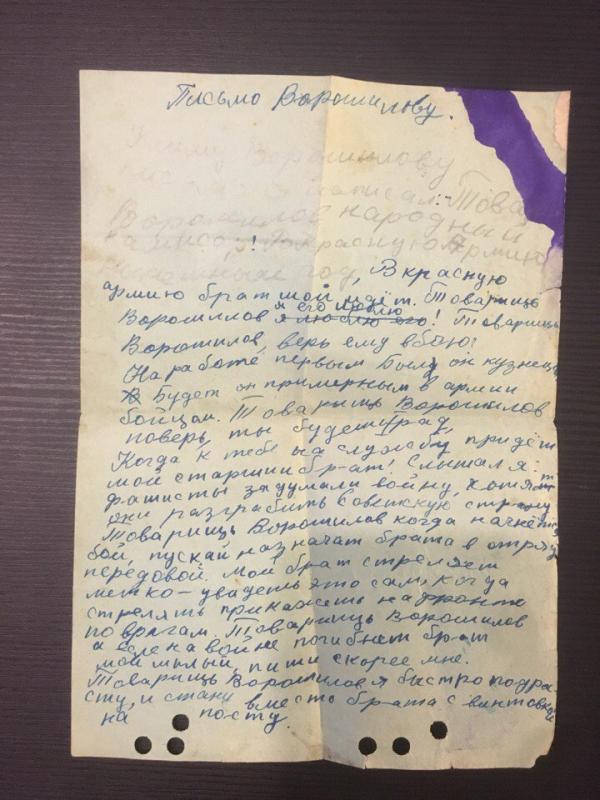 Письмо Ворошилову.
Ворошилову
написал. Това
Ворошилов народный
! Красную Армию
год, В красную
армию брат мой идёт. Товарищь
Ворошилов я его люблю я люблю его! Товарищь
Ворошилов, верь ему в бою!
На работе первым был он кузнецом
Будет он примерным в армии
бойцом. Товарищь Ворошилов
поверь ты будеш рад,
Когда к тебе на службу придёт
мой старший брат! Слышал я:
фашисты задумали войну, хотят
они разграбить Советскую страну
Товарищь Ворошилов когда начнётся
бой, пускай назначат брата в отряд
передовой. Мой брат стреляет
метко – увадешь это сам, когда
стрелять прикажешь на фронте
по врагам. Товарищь Ворошилов
а если на войне погибнет брат
мой милый, пиши скорее мне.
Товарищь Ворошилов я быстро подра-
сту, и стану вместо брата с винтовкой
на посту.